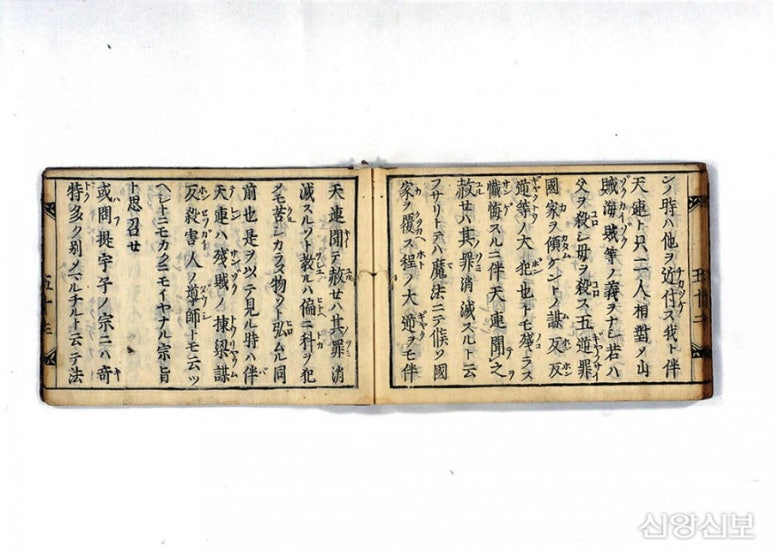 五十二
ンノ時ハ他ヲ近付ス我ト伴
天連ト只二人相對メ山
賊海賊等ノ義ヲナシ若ハ
父ヲ殺シ母ヲ殺ス五逆罪
國家ヲ傾ケントノ謀反反
逆等ノ大犯也トモ殘ラス
懺悔スルニ伴天連聞之
赦セハ其罪消滅スルト云
フサリトテハ魔法ニテ候ソ國
家ヲ覆ス程ノ大逆ヲモ伴
天連聞テ赦セハ其罪消
滅スルソト教ルハ偏ニ科ヲ犯
メモ苦シカラヌ物ソト弘ムル同
前也是ヲ以テ見ル時ハ伴
天連ハ殘賊ノ棟梁謀
反殺害人ノ導師トモ云ツ
ヘシトニモカクニモイヤナル宗旨
ト思召セ
或問提宇子ノ宗ニハ奇
特多ク別メマルチルト云テ法
五十三
신앙신보